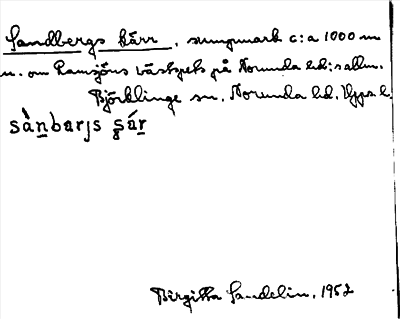 Sandbergs kärr, sumpmark c:a 1000 m
n. om Ramsjöns västspets på Norunda hd:s allm.
Björklinge sn, Norunda hd, Upps. l.
sànbarjs ʂár
Birgitta Sandelin, 1952